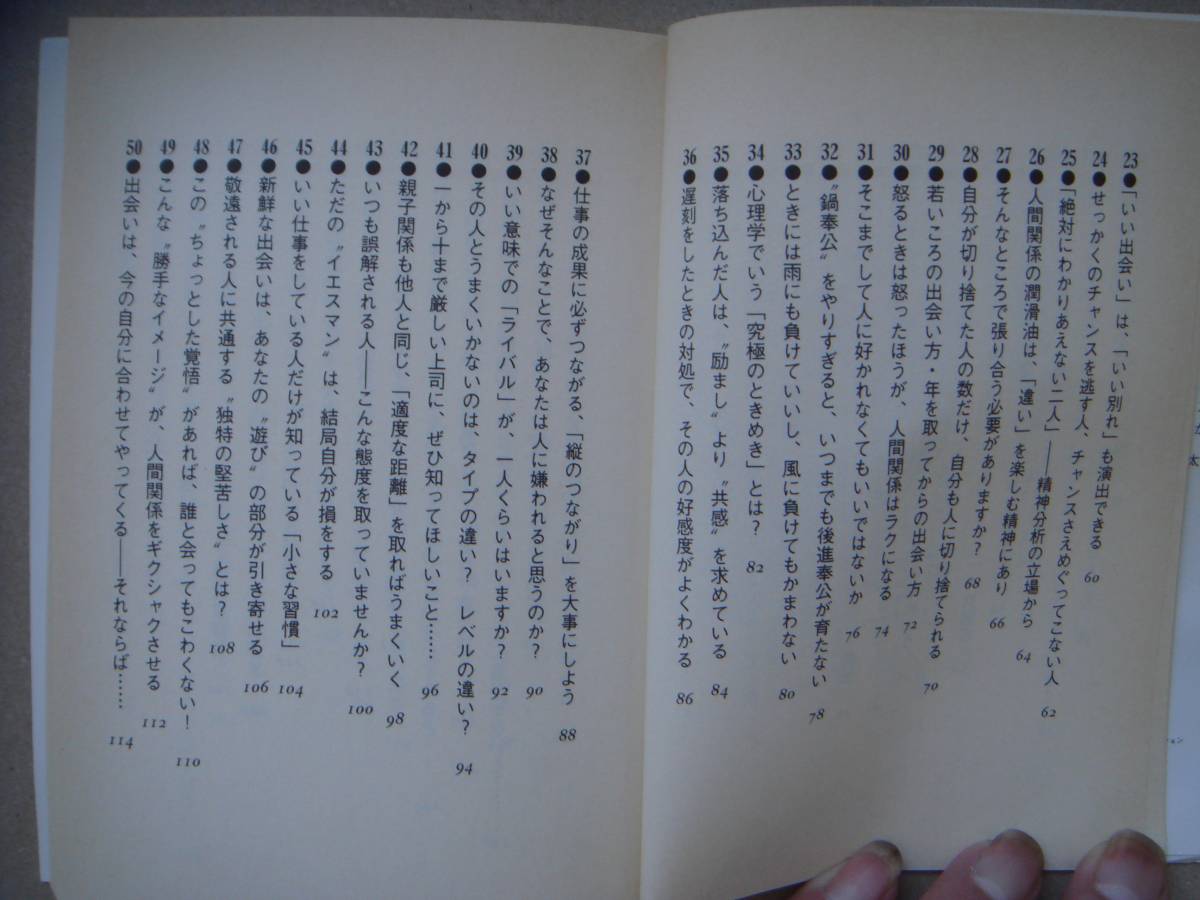 23●「いい出会い」は、「いい別れ」も演出できる 60
24●せっかくのチャンスを逃す人、チャンスさえめぐってこない人 62
25●「絶対にわかりあえない二人」――精神分析の立場から 64
26●人間関係の潤滑油は、「違い」を楽しむ精神にあり 66
27●そんなところで張り合う必要がありますか? 68
28●自分が切り捨てた人の数だけ、自分も人に切り捨てられる 70
29●若いころの出会い方・年を取ってからの出会い方 72
30●怒るときは怒ったほうが、人間関係はラクになる 74
31●そこまでして人に好かれなくてもいいではないか 76
32●〝鍋奉公〟をやりすぎると、いつまでも後進奉公が育たない 78
33●ときには雨にも負けていいし、風に負けてもかまわない 80
34●心理学でいう「究極のときめき」とは? 82
35●落ち込んだ人は、〝励まし〟より〝共感〟を求めている 84
36●遅刻をしたときの対処で、その人の好感度がよくわかる 86
37●仕事の成果に必ずつながる、「縦のつながり」を大事にしよう 88
38●なぜそんなことで、あなたは人に嫌われると思うのか? 90
39●いい意味での「ライバル」が、一人くらいはいますか? 92
40●その人とうまくいかないのは、タイプの違い? レベルの違い? 94
41●一から十まで厳しい上司に、ぜひ知ってほしいこと…… 96
42●親子関係も他人と同じ、「適度な距離」を取ればうまくいく 98
43●いつも誤解される人――こんな態度を取っていませんか? 100
44●ただの〝イエスマン〟は、結局自分が損をする 102
45●いい仕事をしている人だけが知っている「小さな習慣」 104
46●新鮮な出会いは、あなたの〝遊び〟の部分が引き寄せる 106
47●敬遠される人に共通する〝独特の堅苦しさ〟とは? 108
48●この〝ちょっとした覚悟〟があれば、誰と会ってもこわくない! 110
49●こんな〝勝手なイメージ〟が、人間関係をギクシャクさせる 112
50●出会いは、今の自分に合わせてやってくる――それならば…… 114